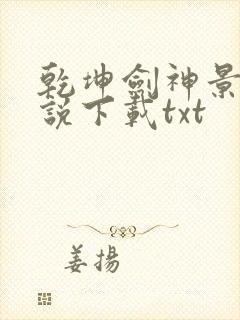 乾坤劍神景
說下載txt
姜揚